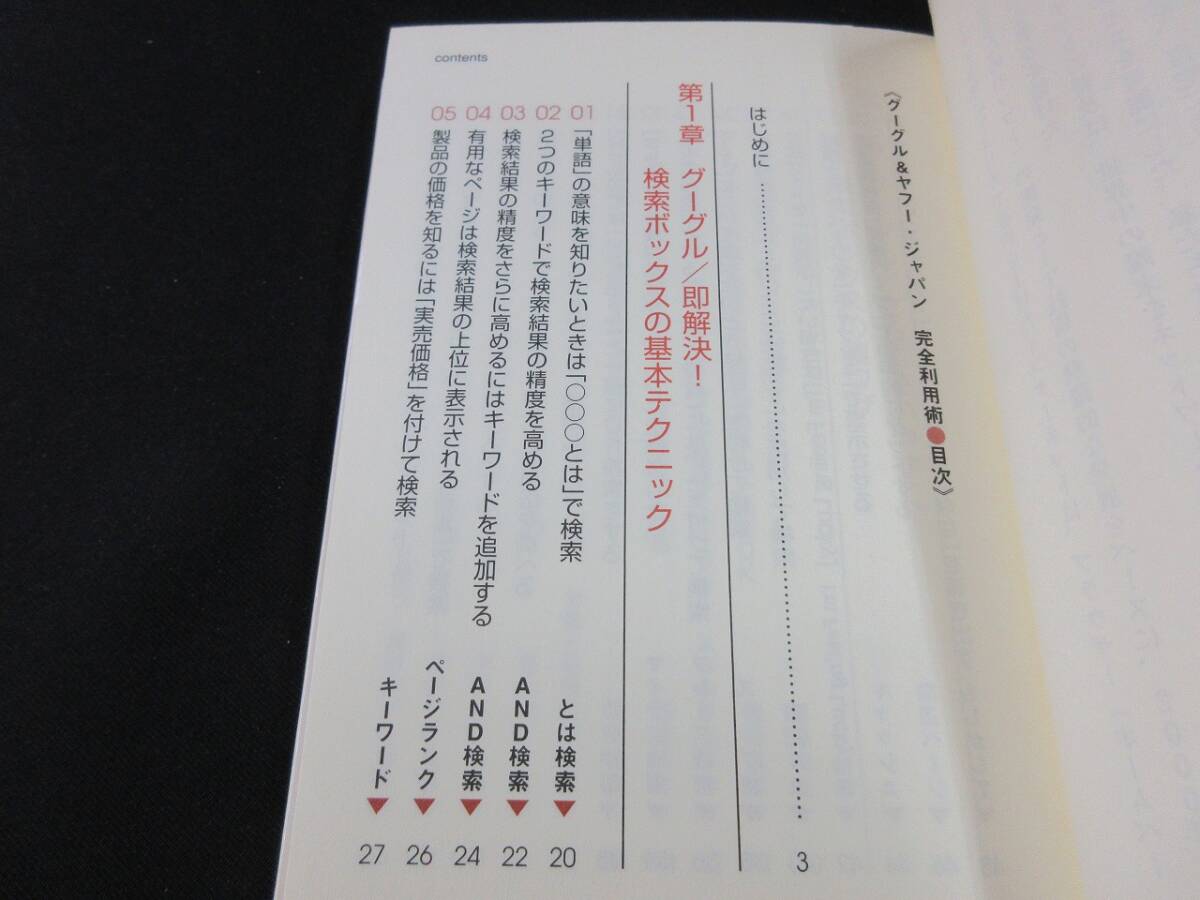 contents
《グーグル&ヤフー・ジャパン 完全利用術●目次》
はじめに……………………………………3
第1章 グーグル/即解決!
検索ボックスの基本テクニック
01 「単語」の意味を知りたいときは「○○○とは」で検索 とは検索▼ 20
02 2つのキーワードで検索結果の精度を高める AND検索▼ 22
03 検索結果の精度をさらに高めるにはキーワードを追加する AND検索▼ 24
04 有用なページは検索結果の上位に表示される ページランク▼ 26
05 製品の価格を知るには「実売価格」を付けて検索 キーワード▼ 27